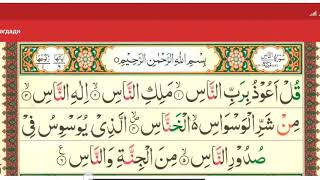 агдади
بِسْمِ اللّٰهِ الرَّحْمٰنِ الرَّحِيْمِ
قُلْ اَعُوْذُ بِرَبِّ النَّاسِ ۙ۱ مَلِكِ النَّاسِ ۙ۲ اِلٰهِ النَّاسِ ۙ۳
مِنْ شَرِّ الْوَسْوَاسِ ۙ۬ الْخَنَّاسِ ۪ۙ۴ الَّذِىْ يُوَسْوِسُ فِىْ
صُدُوْرِ النَّاسِ ۙ۵ مِنَ الْجِنَّةِ وَالنَّاسِ